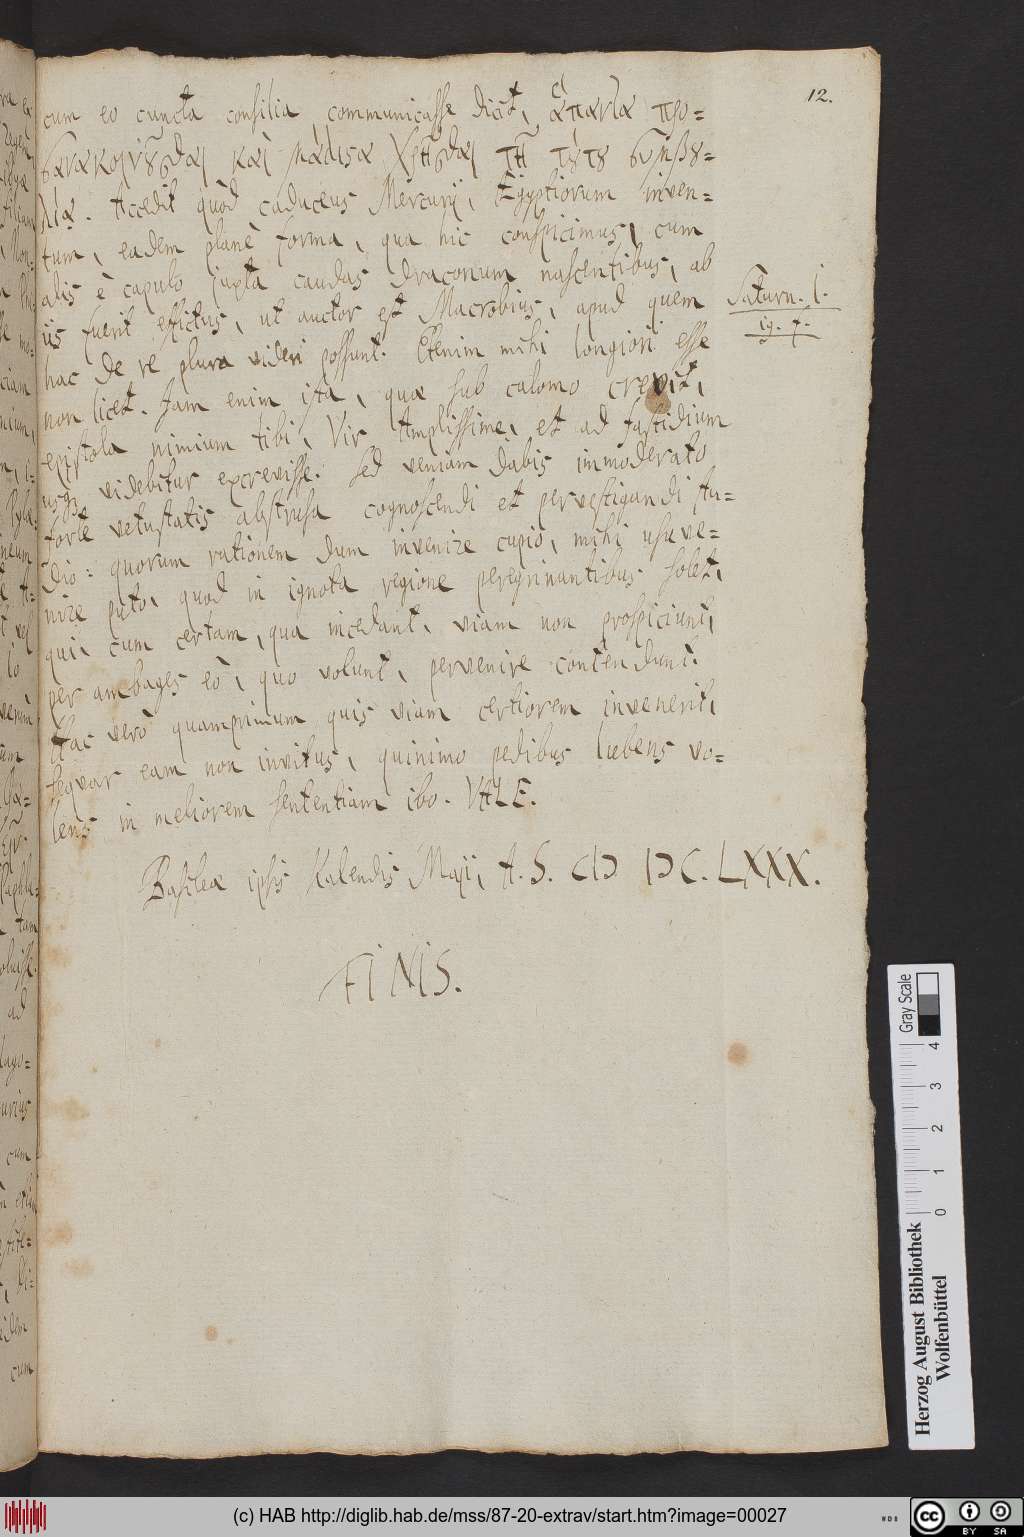 12.
cum eo cuncta consilia communicasse dicit, ἅπαντα προ=
σανακοινοῦσθαι καὶ μάλιστα χρῆσθαι τῇ τούτου συμβου=
λίᾳ. Accedit quòd caduceus Mercurij, Ægyptiorum inven=
tum, eadem planè forma, qua hic conspicimus, cum
alis è capulo juxta caudas draconum nascentibus, ab
iis fuerit effictus, ut auctor est Macrobius, apud quem
Saturn. I.
19. 7.
hac de re plura videri possunt. Etenim mihi longiori esse
non licet. Jam enim ista, quæ sub calamo crevit,
epistola nimium tibi, Vir Amplissime, et ad fastidium
usq; videbitur excrevisse. Sed veniam dabis immoderato
forte vetustatis abstrusa cognoscendi et pervestigandi stu=
dio: quorum rationem dum invenire cupio, mihi usuve=
nire puto, quod in ignota regione peregrinantibus solet,
qui cum certam, qua incedant, viam non prospiciunt,
per ambages eò, quo volunt, pervenire contendunt.
Hac verò quamprimum quis viam certiorem invenerit,
sequar eam non invitus, quinimo pedibus lubens vo=
lens in meliorem sententiam ibo. VALE.
Basileæ ipsis Kalendis Maji, A. S. CIƆ IƆC. LXXX.
FINIS.
Herzog August Bibliothek
Wolfenbüttel
0 1 2 3 4
Gray Scale
(c) HAB http://diglib.hab.de/mss/87-20-extrav/start.htm?image=00027
cc BY SA